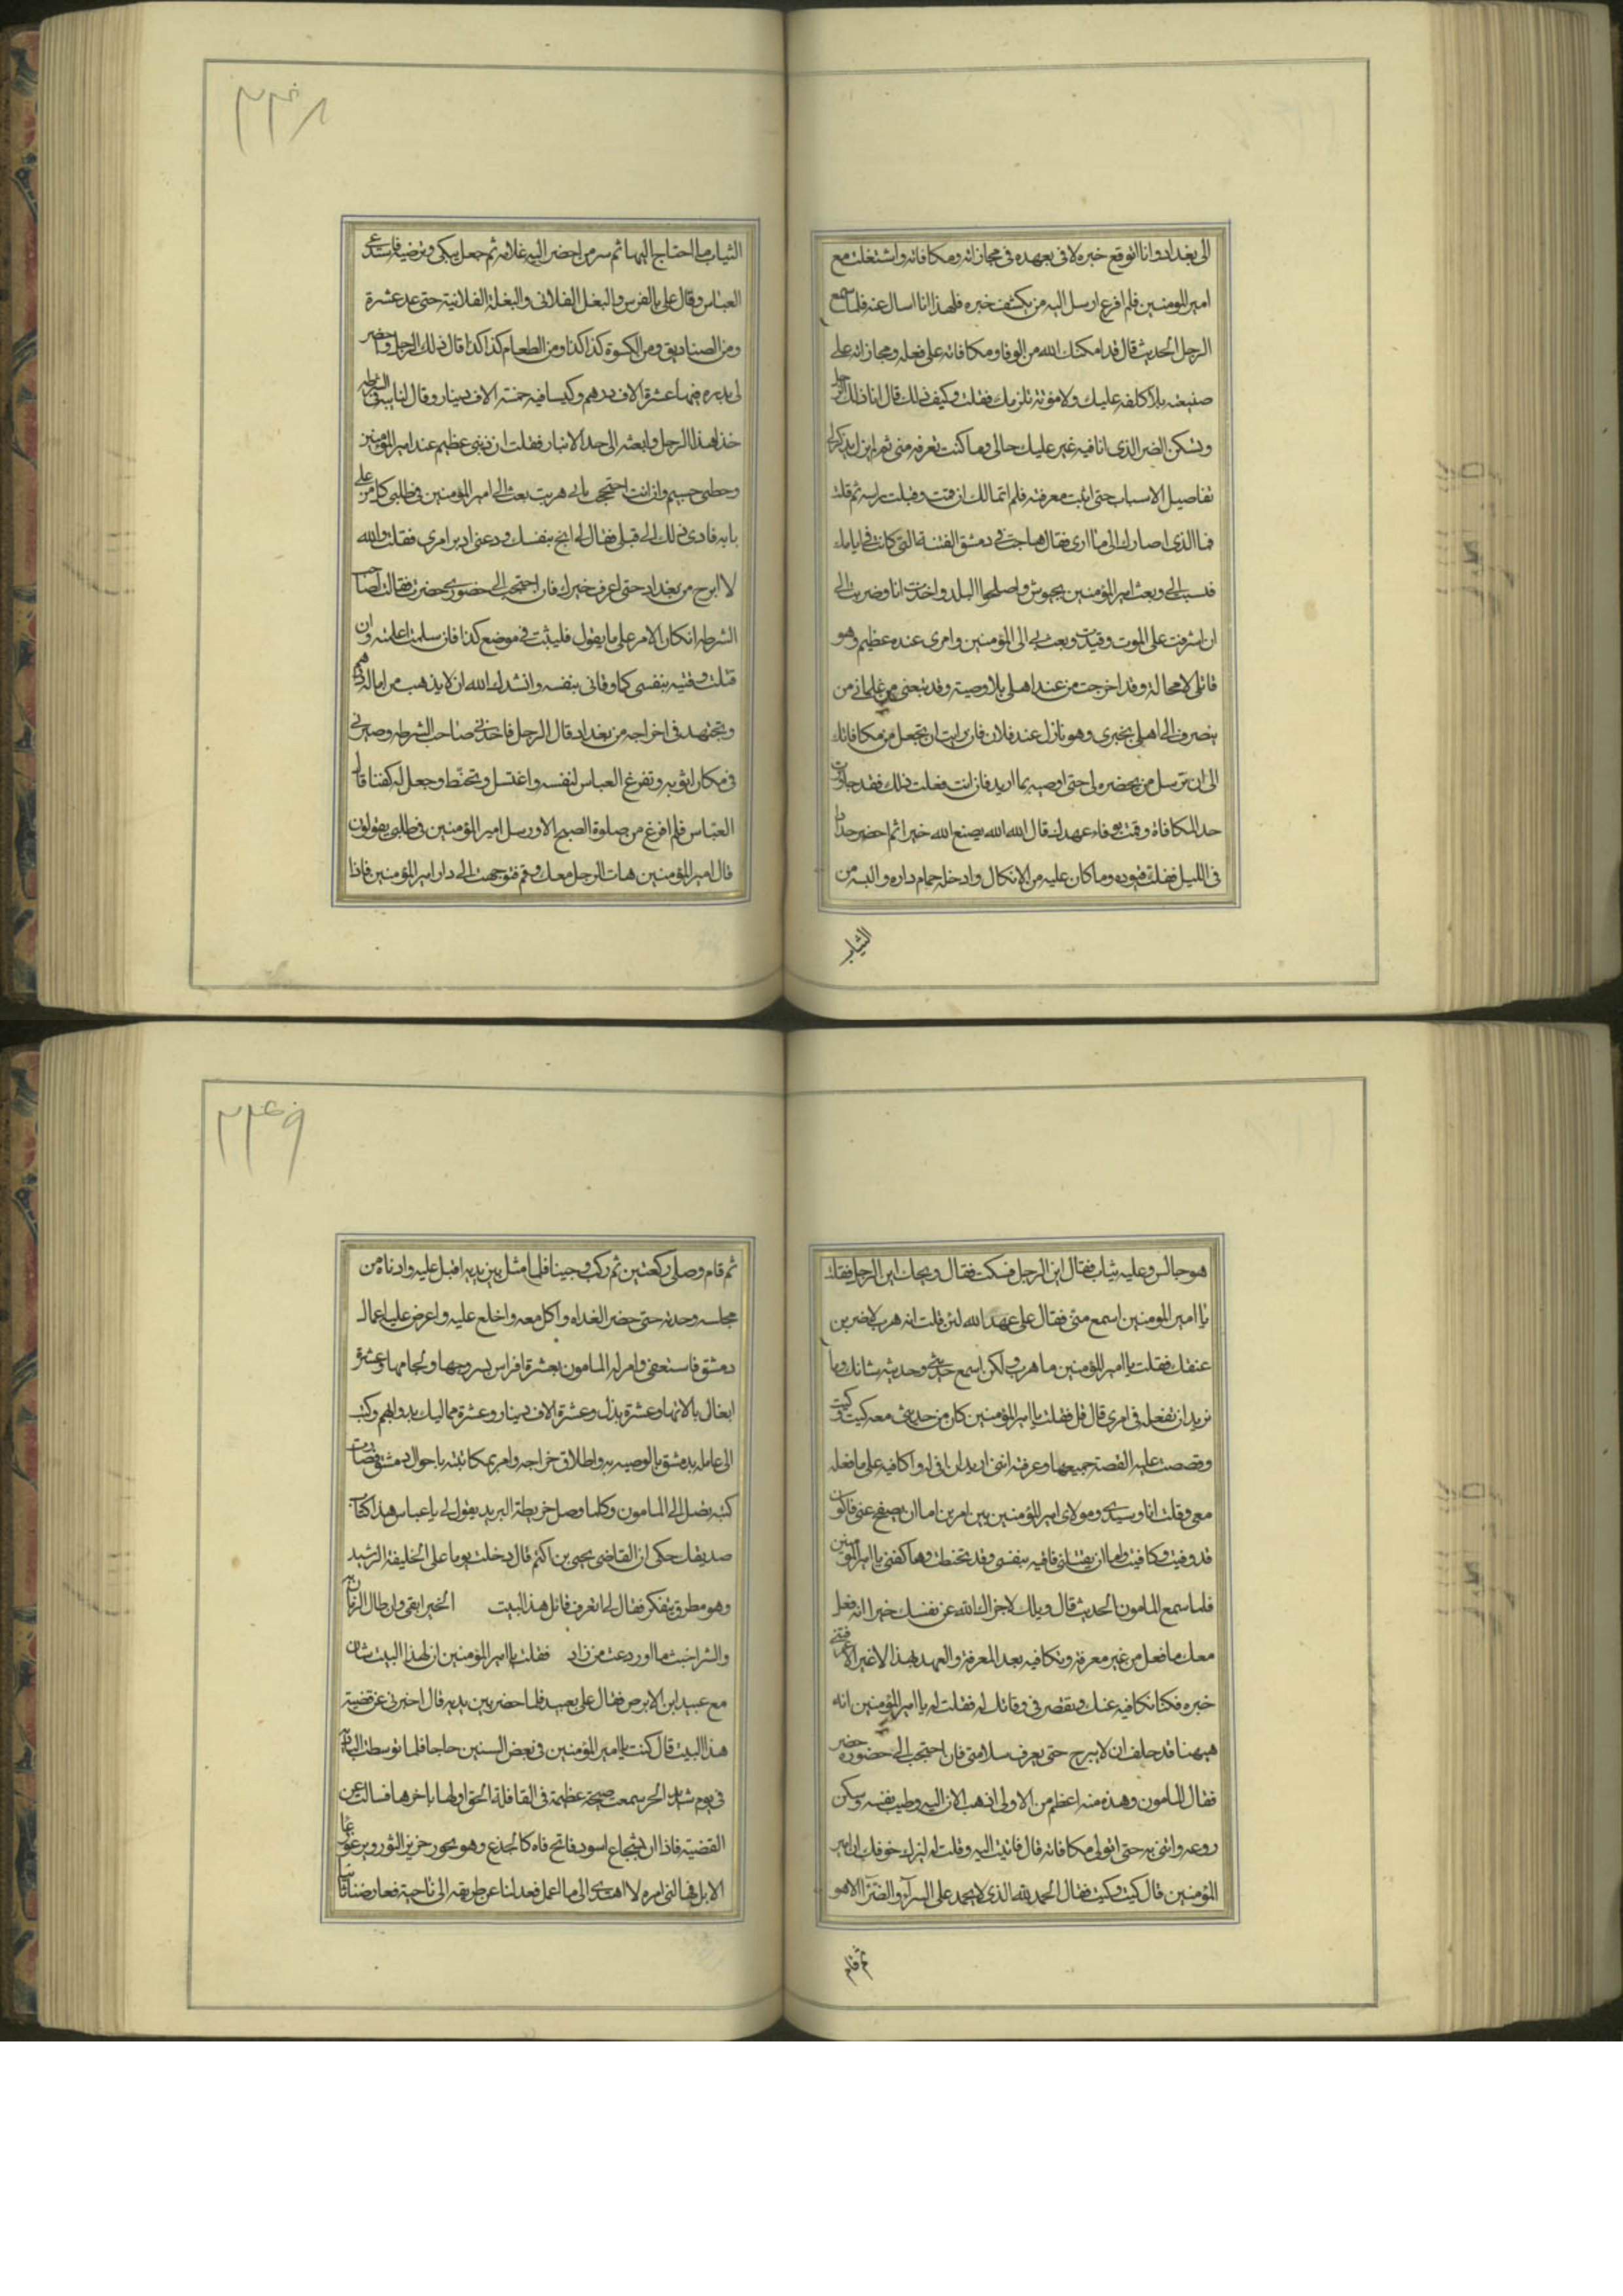 الى بغداد وانا اتوقع خبره لافى بعهده فى مجازاته ومكافاته واشتغلت مع
امير المومنين فلم افرغ ارسل اليه من يكشف خبره فلهذا انا اسال عنه فلما سمع
الرجل الحديث قال قد امكنك الله من الوفا ومكافاته على فعله ومجازاته على
صنيعه بلا كلفه عليك ولا مؤنه تلزمك فقلت وكيف ذلك قال انا ذلك الرجل
وتسكن الضر الذى انا فيه غير عليك حالى وما كنت تعرفه منى ثم لم يزل يذكر لى
تفاصيل الاسباب حتى اثبت معرفته فلم اتمالك ان قمت وقبلت راسه ثم قلت
فما الذى اصارك الى ما ارى فقال هاجت فى دمشق الفتنة التى كانت فى ايامك
فنسبت الى وبعث امير المؤمنين بجيوش واصلحوا البلد واخذت انا وضربت الى
ان اشرفت على الموت وقيدت وبعث بى الى المؤمنين وامرى عنده عظيم وهو
قاتلى لا محالة وقد اخرجت من عند اهلى بلا وصية وقد تبعنى من غلمانى من
ينصرف الى اهلى بخبرى وهو نازل عند فلان فان رايت ان تجعل من مكافاتك
الى ان ترسل من يحضره لى حتى اوصيه بما اريد فان انت فعلت ذلك فقد جاوزت
حد المكافاة وقمت بوفاء عهدك قال الله الله يصنع الله خيرا ثم احضر حدادا
فى الليل ففك قيوده وما كان عليه من الانكال وادخله حمام داره والبسه من
الثياب
٢٣٤٨
الثياب ما احتاج اليها ثم سر من احضر اليه غلامه ثم جعل يبكى ويوصيه فاستدعى
العباس وقال على بالفرس والبغل الفلانى والبغلة الفلانية حتى عد عشرة
ومن الصناديق ومن الكسوة كذا كذا ومن الطعام كذا كذا قال ذلك الرجل واحضر
لى بدره فيها عشرة الاف درهم وكيسا فيه خمسة الاف دينار وقال لنايبه فى الشرطه
خذ هذا الرجل وابعثه الى حد الانبار فقلت ان ذنبى عظيم عند امير المؤمنين
وخطبى جسيم وان انت احتججت بانى هربت بعث الى امير المؤمنين فى طلبى كل من على
بابه فادى ذلك الى قبلى فقال لى انج بنفسك ودعنى ادبر امرى فقلت والله
لا ابرح من بغداد حتى اعرف خبرك فان احتجت الى حضورى حضرت فقال لصاحب
الشرطه ان كان الامر على ما يقول فليثبت فى موضع كذا فان سلمت اعلمته وان
قتلت وقيته بنفسى كما وقانى بنفسه وانشدك الله ان لا يذهب من ماله درهم
وتجتهد فى اخراجه من بغداد قال الرجل فاخذنى صاحب الشرطه وصيرنى
فى مكان اثق به وتفرغ العباس لنفسه واغتسل وتحنط وجعل له كفنا قال
العباس فلم افرغ من صلوة الصبح الا ورسل امير المؤمنين فى طلبى يقولون
قال امير المؤمنين هات الرجل معك وقم فتوجهت الى دار امير المؤمنين فاذا
هو جالس وعليه ثياب فقال اين الرجل فسكت فقال ويحك اين الرجل فقلت
يا امير المومنين اسمع منى فقال على عهد الله لئن قلت انه هرب لاضربن
عنقك فقلت يا امير المؤمنين ما هرب ولكن اسمع حديثى وحديثه شانك وما
تريد ان تفعله فى امرى قال قل فقلت يا امير المؤمنين كان من حديثى معه كيت وكيت
وقصصت عليه القصة جميعها وعرفته اننى اريد ان افى له واكافيه على ما فعله
معى وقلت انا وسيدى ومولاى امير المؤمنين بين امرين اما ان يصفح عنى فاكون
قد وفيت وكافيت واما ان يقتلنى فاقيه بنفسى وقد تحنطت وها كفنى يا امير المؤمنين
فلما سمع المامون الحديث قال ويلك لا جزاك الله عن نفسك خيرا انه فعل
معك ما فعل من غير معرفة وتكافيه بعد المعرفة والعهد بهذا لا غير الا عرفتنى
خبره فكنا نكافيه عنك ونقصر فى وفائك له فقلت له يا امير المؤمنين انه
هيهنا قد حلف ان لا يبرح حتى يعرف سلامتى فان احتجت الى حضوره حضر
فقال المامون وهذه منه اعظم من الاولى اذهب الان اليه وطيب نفسه وسكن
روعه وائتنى به حتى اتولى مكافاته قال فاتيت اليه وقلت له ليزل خوفك ان امير
المؤمنين قال كيت وكيت فقال الحمد لله الذى لا يحمد على السرآء والضرآء الا هو
ثم قام
٢٣٤٩
ثم قام وصلى ركعتين ثم ركب وجينا فلما مثل بين يديه اقبل عليه وادناه من
مجلسه وحدثه حتى حضر الغداء واكل معه واخلع عليه واعرض عليه اعمال
دمشق فاستعفى وامر له المامون بعشرة افراس بسروجها ولجامها وعشرة
ابغال بالاتها وعشرة بدل وعشرة الاف دينار وعشرة مماليك بدوابهم وكتب
الى عامله بدمشق بالوصيه به واطلاق خراجه وامر بمكاتبته باحوال دمشق فصارت
كتبه تصل الى المامون وكلما وصل خريطة البريد يقول لى يا عباس هذا كتاب
صديقك حكى ان القاضى يحيى بن اكثم قال دخلت يوما على الخليفة الرشيد
وهو مطرق يتفكر فقال لى اتعرف قائل هذا البيت الخير ابقى وان طال الزمان به
والشر اخبث ما اوردعت من زاد فقلت يا امير المؤمنين ان لهذا البيت شان
مع عبيد ابن الابرص فقال على بعبيد فلما حضر بين يديه قال اخبرنى عن قضية
هذا البيت قال كنت يا امير المؤمنين فى بعض السنين حاجا فلما توسطت البادية
فى يوم شديد الحر سمعت صيحة عظيمة فى القافلة الحق اولها باخرها فسالت عن
القضية فاذا ان شجاع اسود فاتح فاه كالجذع وهو يخور خزيز الثور ويرغو رغا
الابل فهالنى امره لا اهتدى الى ما اعمل فعدلنا عن طريقه الى ناحية فعارضنا ثانيا